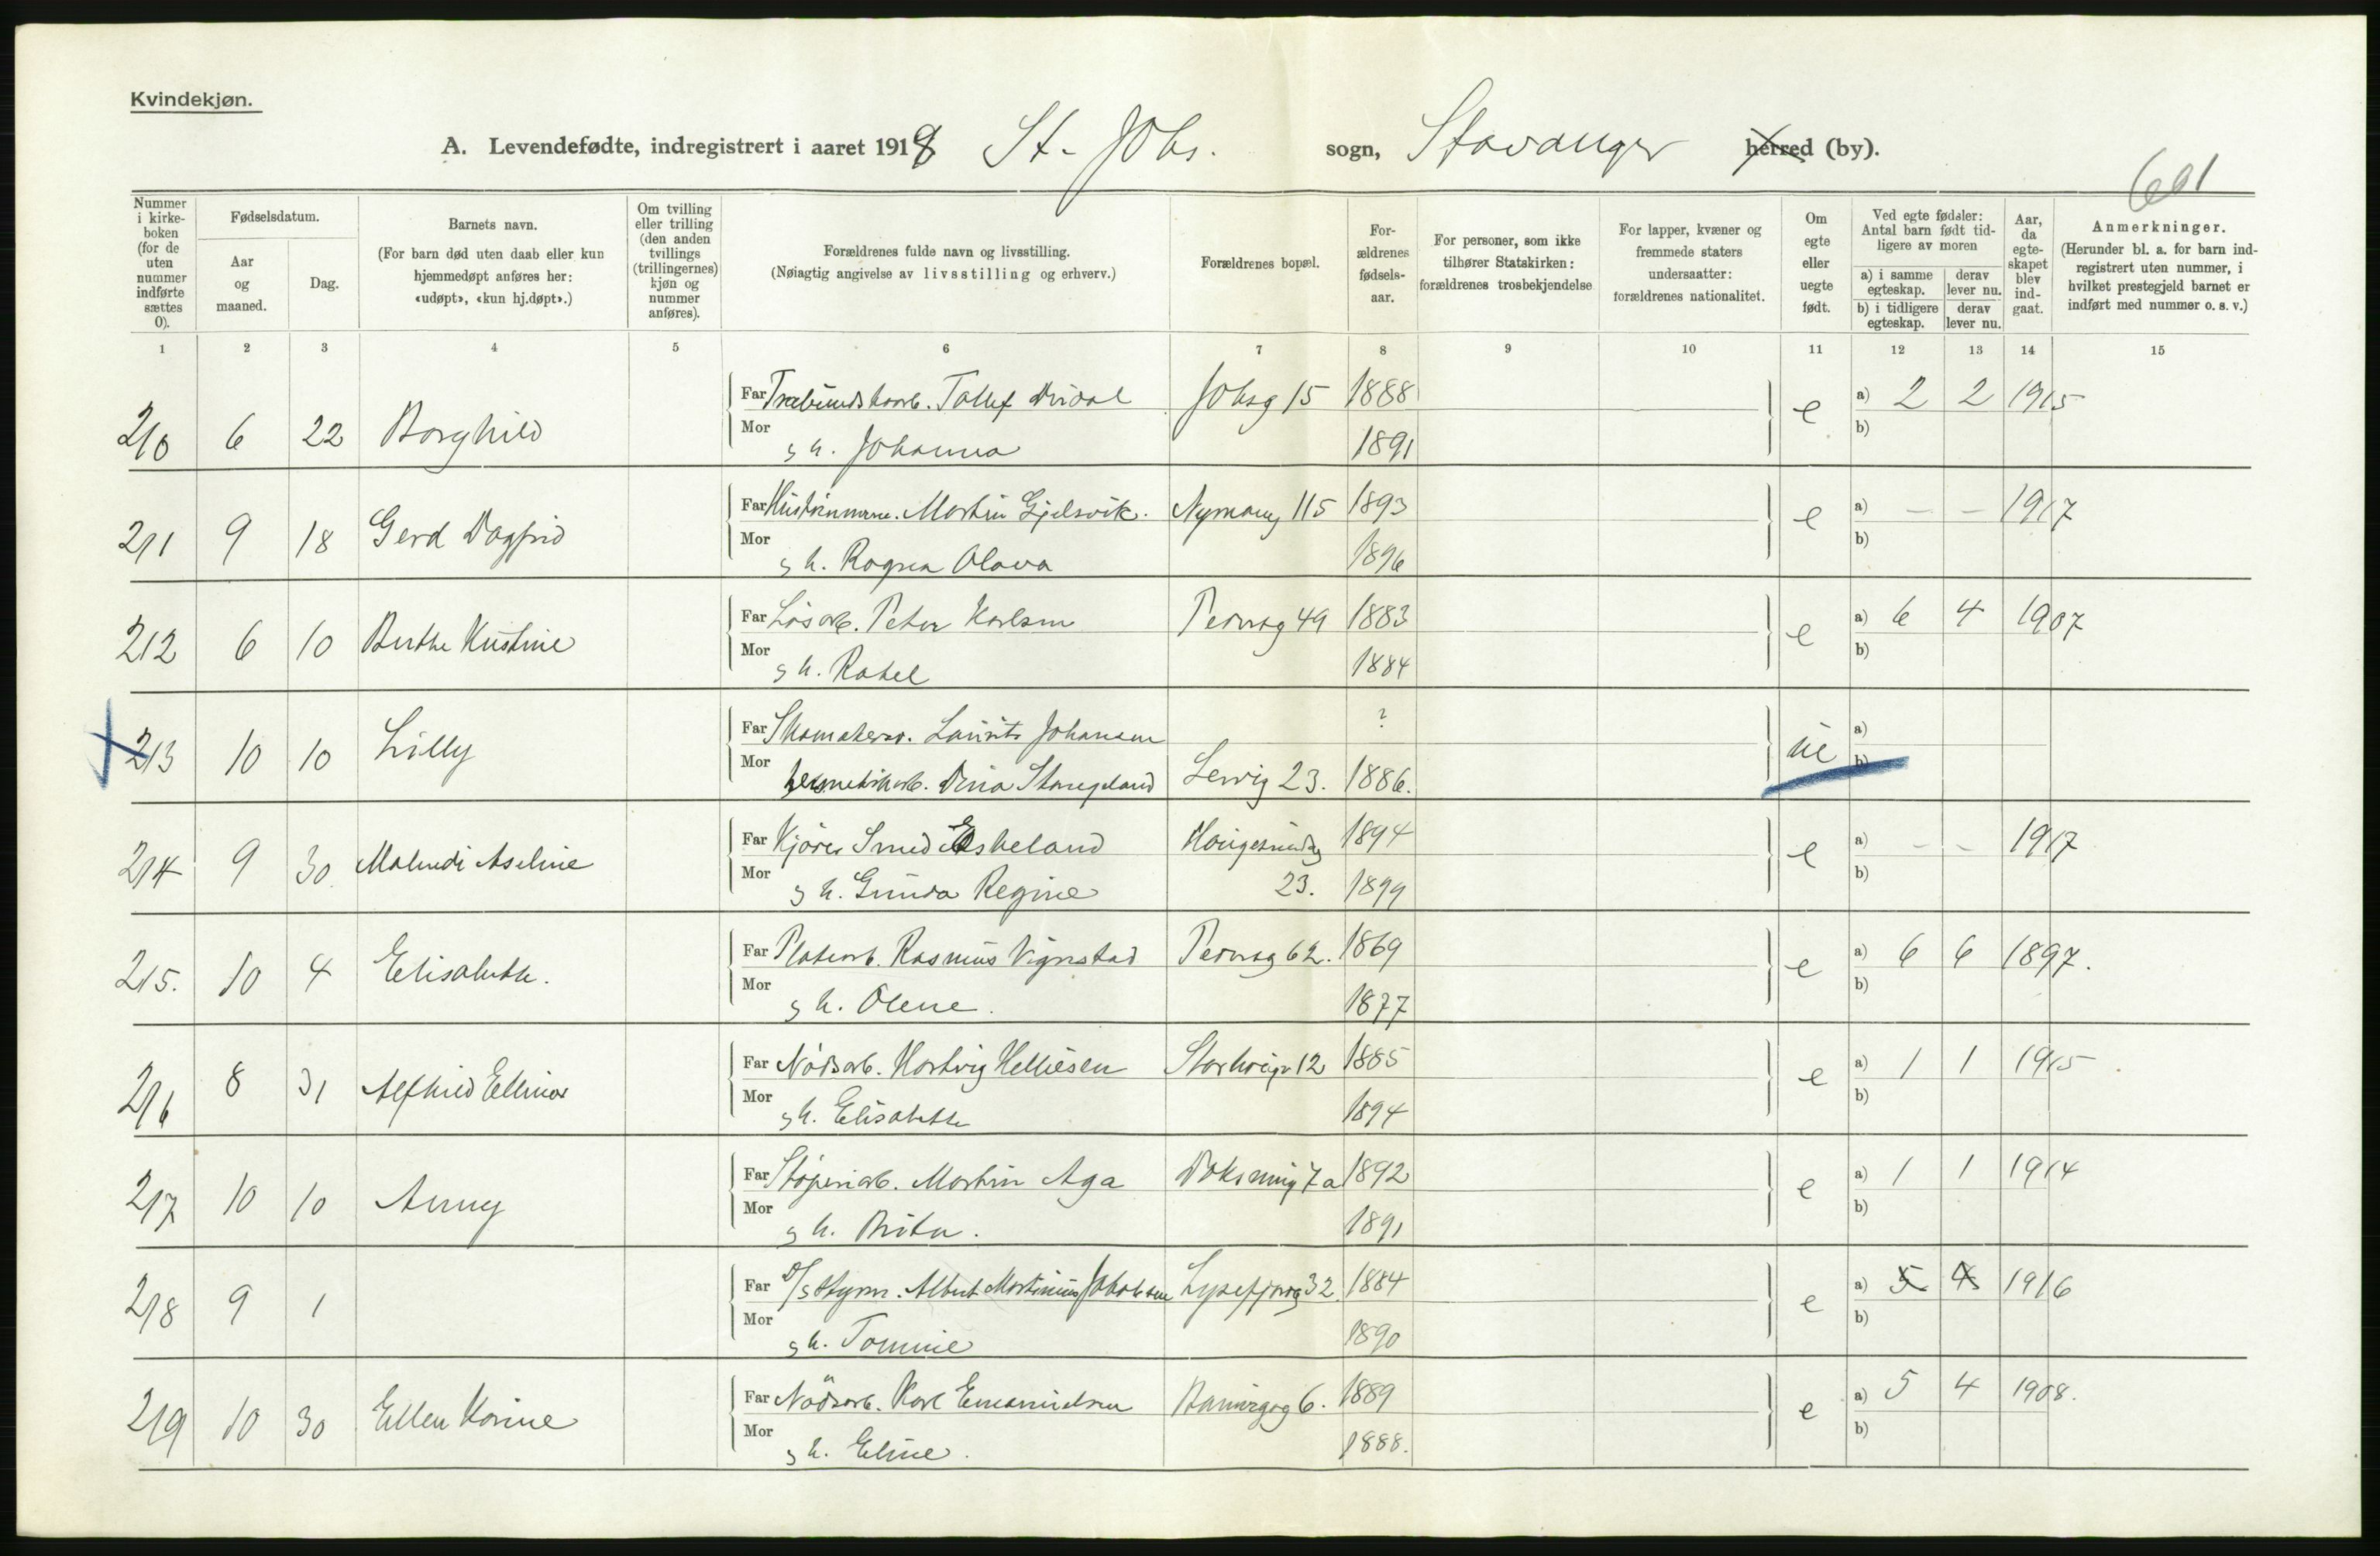 Kvindekjøn.
A. Levendefødte, indregistrert i aaret 1918 St. Johs. sogn, Stavanger herred (by).
661
Nummer i kirkeboken (for de uten nummer indførte sættes 0).
Fødselsdatum.
Aar og maaned.
Dag.
Barnets navn.
(For barn død uten daab eller kun hjemmedøpt anføres her: «udøpt», «kun hj.døpt».)
Om tvilling eller trilling (den anden tvillings (trillingernes) kjøn og nummer anføres).
Forældrenes fulde navn og livsstilling.
(Nøiagtig angivelse av livsstilling og erhverv.)
Forældrenes bopæl.
Forældrenes fødselsaar.
For personer, som ikke tilhører Statskirken: forældrenes trosbekjendelse
For lapper, kvæner og fremmede staters undersaatter: forældrenes nationalitet.
Om egte eller uegte født.
Ved egte fødsler: Antal barn født tidligere av moren
a) i samme egteskap. derav lever nu.
b) i tidligere egteskap. derav lever nu.
Aar, da egteskapet blev indgaat.
Anmerkninger.
(Herunder bl. a. for barn indregistrert uten nummer, i hvilket prestegjeld barnet er indført med nummer o. s. v.)
1 2 3 4 5 6 7 8 9 10 11 12 13 14 15
210 6 22 Borghild Far Tollef Johsg 15 1888 e a) 2 2 1915
Mor g h. Johanna 1891 b)
211 9 18 Gerd Dagfrid Far Martin Gjelsvik. 115 1893 e a) - - 1917
Mor g h. Ragna Olava 1896 b)
212 6 10 Berthe Kristine Far Løsarb. Peter Karlsen Pedersg 49 1883 e a) 6 4 1907
Mor g h. Rakel 1884 b)
213 10 10 Lilly Far Skomakersv. Laurits Johansen ? ue a)
Mor hermetikarb. Dina Stangeland Lervig 23. 1886. b)
214 9 30 Aseline Far Smed Eskeland Haugesundsg 1894 e a) - - 1917
Mor g h. Gunda Regine 23. 1899 b)
215. 10 4 Elisabeth. Far Platearb. Rasmus Vignestad Pedersg 62. 1869 e a) 6 6 1897.
Mor g h. Olene. 1877 b)
216 8 31 Alfhild Ellinor Far Nødsarb. Hartvig Helliesen Storhaugv 12 1885 e a) 1 1 1915
Mor g h. Elisabeth 1894 b)
217 10 10 Anny Far Støperiarb. Martin Aga 7a 1892 e a) 1 1 1914
Mor g h. Brita. 1891 b)
218 9 1 Far D/S Styrm. Albert Martinius Jakobsen Lysefjordg 32. 1884 e a) 5 4 1916
Mor g h. Tomine 1890 b)
219 10 30 Ellen Karine Far Nødsarb. Karl Emanuelsen 6. 1889 e a) 5 4 1908.
Mor g h. Eline. 1888. b)